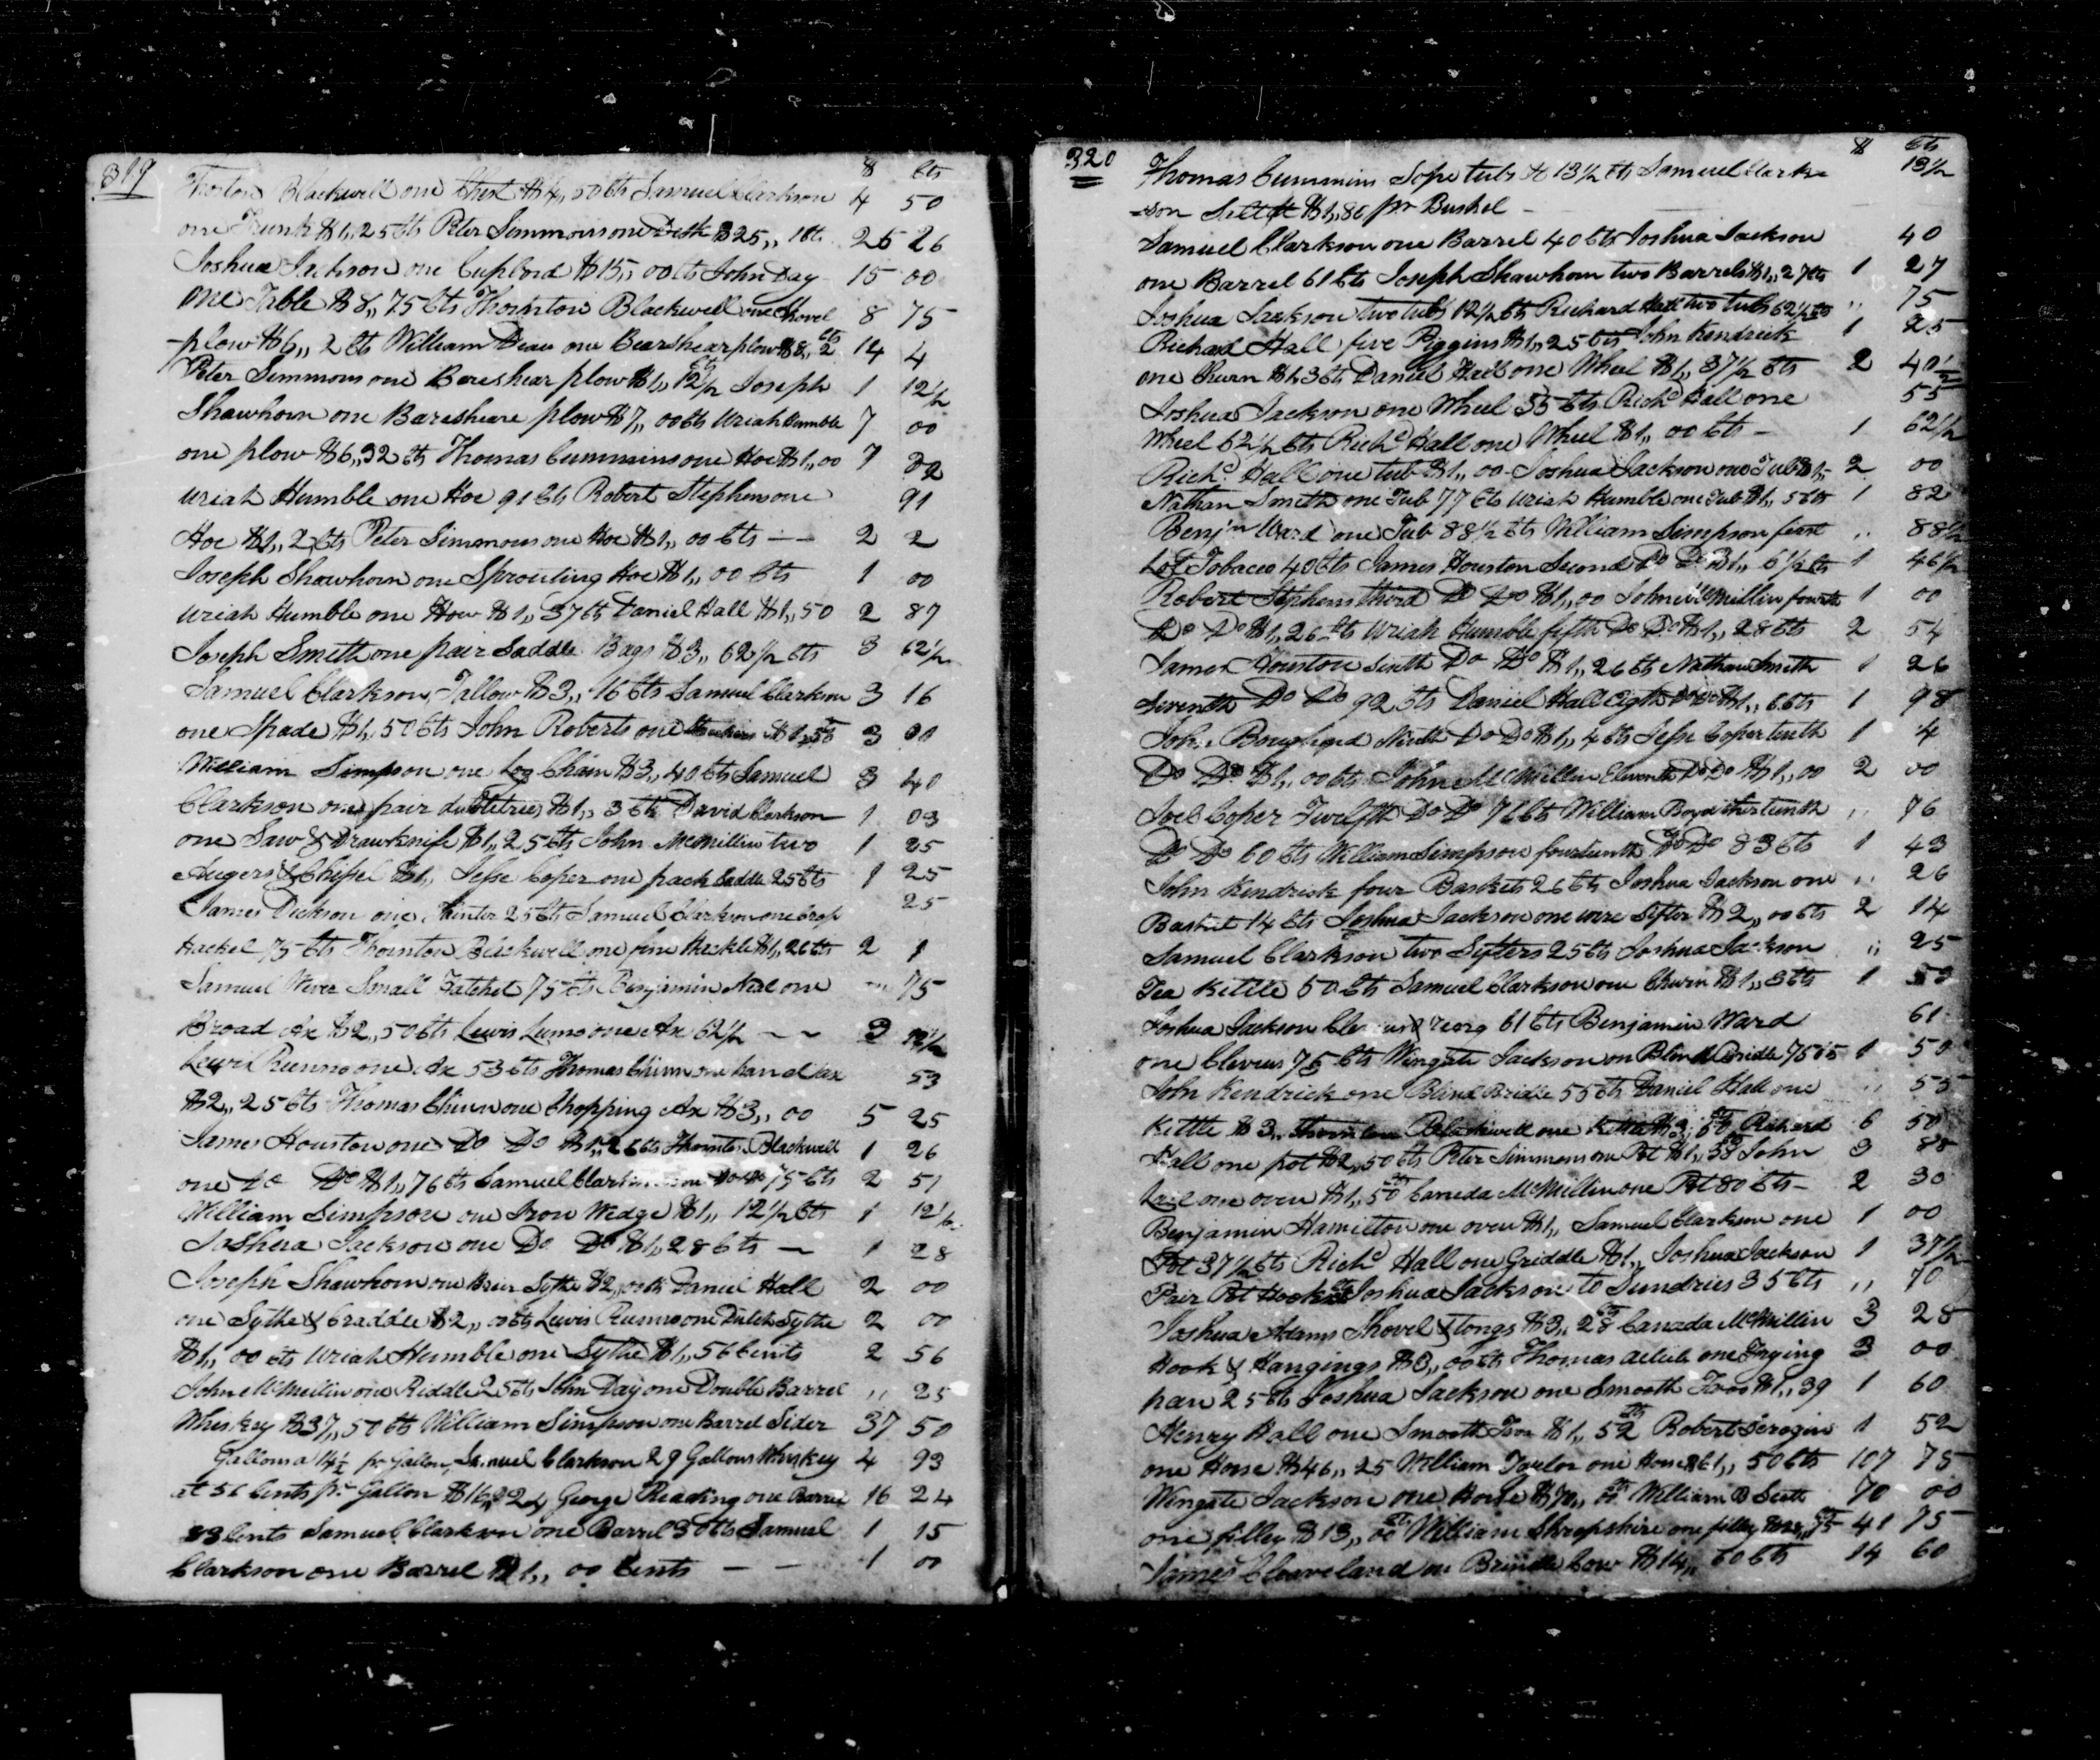 319
$ Cts
Thornton Blackwell one Chest $4,,50 Cts Samuel Clarkson 4 50
one Trunk $1,,25 Cts Peter Simmons one Desk $25,, 1 Cts 26 26
Joshua Jackson one Cupbord $15,,00 Cts John Day 15 00
one Table $8,,75 Cts Thornton Blackwell one Shovel 8 75
plow $6,,2 Cts William Dean one Bearshear plow $8,,2 Cts 14 4
Peter Simmons one Bareshear plow $1,,12½ Cts Joseph 1 12½
Shawhorn one Bareshear plow $7,,00 Cts Uriah Humble 7 00
one plow $6,,32 Cts Thomas Cummins one Hoe $1,,00 7 32
Uriah Humble one Hoe 91 Cts Robert Stephens one 91
Hoe $1,,2 Cts Peter Simmons one Hoe $1,,00 Cts - - 2 2
Joseph Shawhorn one Sprouting Hoe $1,,00 Cts 1 00
Uriah Humble one How $1,,37 Cts Daniel Hall $1,,50 2 87
Joseph Smith one pair Saddle Bags $3,,62½ Cts 3 62½
Samuel Clarkson, Tallow $3,,16 Cts Samuel Clarkson 3 16
one Spade $1,,50 Cts John Roberts one $1,,50 Cts 3 00
William Simpson one Log Chain $3,,40 Cts Samuel 3 40
Clarkson one pair dubletries $1,,3 Cts David Clarkson 1 03
one Saw & Drawknife $1,,25 Cts John McMillin two 1 25
Augers & Chissel $1,, Jesse Coper one pack Saddle 25 Cts 1 25
James Dickson one 25 Cts Samuel Clarkson one Crop 25
Hackel 75 Cts Thornton Blackwell one fine Hackle $1,,26 Cts 2 1
Samuel Wever Small Hatchet 75 Cts Benjamin Neal one 75
Broad Ax $2,,50 Cts Lewis one Ax 62½ - - 3 12½
Lewis one Ax 53 Cts Thomas Chinn one hand ax 53
$2,,25 Cts Thomas Chinn one Chopping Ax $3,,00 5 25
James Houston one Do Do $1,,26 Cts Thornton Blackwell 1 26
one Do Do $1,,76 Cts Samuel Clarkson one Do Do 75 Cts 2 51
William Simpson one Iron Wedge $1,,12½ Cts 1 12½
Joshua Jackson one Do Do $1,,28 Cts - 1 28
Joseph Shawhorn one Sythe $2,,00 Cts Daniel Hall 2 00
one Sythe & Craddle $2,,00 Cts Lewis one Dutch Sythe 2 00
$1,,00 Cts Uriah Humble one Sythe $1,,56 Cents 2 56
John McMillin one Riddle 25 Cts John Day one Double Barrel ,, 25
Whiskey $37,,50 Cts William Simpson one Barrel Sider 37 50
Gallons a 14½ pr Gallon, Samuel Clarkson 29 Gallons Whiskey 4 93
at 56 Cents pr Gallon $16,,24 George Reading one Barrel 16 24
83 Cents Samuel Clarkson one Barrel 30 Cts Samuel 1 15
Clarkson one Barrel $1,,00 Cents - - 1 00
320
$ Cts
Thomas Cummins Sope tubs to 13½ Cts Samuel Clark= 13½
=son Salt at $1,,86 pr Bushel -
Samuel Clarkson one Barrel 40 Cts Joshua Jackson 40
one Barrel 61 Cts Joseph Shawhorn two Barrels $1,,27 Cts 1 27
Joshua Jackson two tubs 12½ Cts Richard Hall two tubs 62½ Cts ,, 75
Richard Hall five Piggins $1,,25 Cts John Kendrick 1 25
one Churn $1,,3 Cts Daniel Hall one Wheel $1,,37½ Cts 2 40½
Joshua Jackson one Wheel 55 Cts Richd Hall one 55
Wheel 62½ Cts Richd Hall one Wheel $1,,00 Cts - 1 62½
Richd Hall one tub $1,,00 Joshua Jackson one Tub $1,, 2 00
Nathan Smith one Tub 77 Cts Uriah Humble one Tub $1,,5 Cts 1 82
Benjn Ward one Tub 88½ Cts William Simpson first ,, 88½
Lot Tobacco 40 Cts James Houston Second Do Do $1,,6½ Cts 1 46½
Robert Stephens third Do Do $1,,00 John McMillin fourth 1 00
Do Do $1,,26 Cts Uriah Humble fifth Do Do $1,,28 Cts 2 54
James Houston Sixth Do Do $1,,26 Cts Nathan Smith 1 26
Seventh Do Do 92 Cts Daniel Hall Eigth Do Do $1,,6 Cts 1 98
John Ninth Do Do $1,,4 Cts Jesse Coper tenth 1 4
Do Do $1,,00 Cts John McMillin Eleventh Do Do $1,,00 2 00
Joel Coper Twelfth Do Do 76 Cts William Boyd thirteenth ,, 76
Do Do 60 Cts William Simpson fourteenth Do Do 83 Cts 1 43
John Kendrick four Baskets 26 Cts Joshua Jackson one ,, 26
Basket 14 Cts Joshua Jackson one wire Sifter $2,,00 Cts 2 14
Samuel Clarkson two Sifters 25 Cts Joshua Jackson ,, 25
Tea Kettle 50 Cts Samuel Clarkson one Churn $1,,3 Cts 1 53
Joshua Jackson 61 Cts Benjamin Ward 61
one Clevus 75 Cts Wingate Jackson on Blind Bridle 75 Cts 1 50
John Kendrick one Blind Bridle 55 Cts Daniel Hall one ,, 55
Kettle $3,, Thornton Blackwell one Kettle $3,,50 Cts Richard 6 50
Hall one pot $2,,50 Cts Peter Simmons one Pot $1,,38 Cts John 3 88
one oven $1,,50 Cts Caneda McMillin one Pot 80 Cts - 2 30
Benjamin Hamilton one oven $1,, Samuel Clarkson one 1 00
Pot 37½ Cts Richd Hall one Griddle $1,, Joshua Jackson 1 37½
Pair Pot Hooks Joshua Jackson to Sundries 35 Cts ,, 70
Joshua Adams Shovel & tongs $3,,28 Cts Canada McMillin 3 28
Hook & Hangings $3,,00 Cts Thomas one Frying 3 00
pan 25 Cts Joshua Jackson one Smooth Iron $1,,39 1 60
Henry Hall one Smooth Iron $1,,52 Cts Robert Scrogin 1 52
one Horse $46,,25 William Taylor one Horse $61,,50 Cts 107 75
Wingate Jackson one Horse $70,,00 Cts William Scott 70 00
one filley $13,,00 Cts William Shropshire one filley $28,,75 Cts 41 75
James Cleaveland on Brindle Cow $14,,60 Cts 14 60